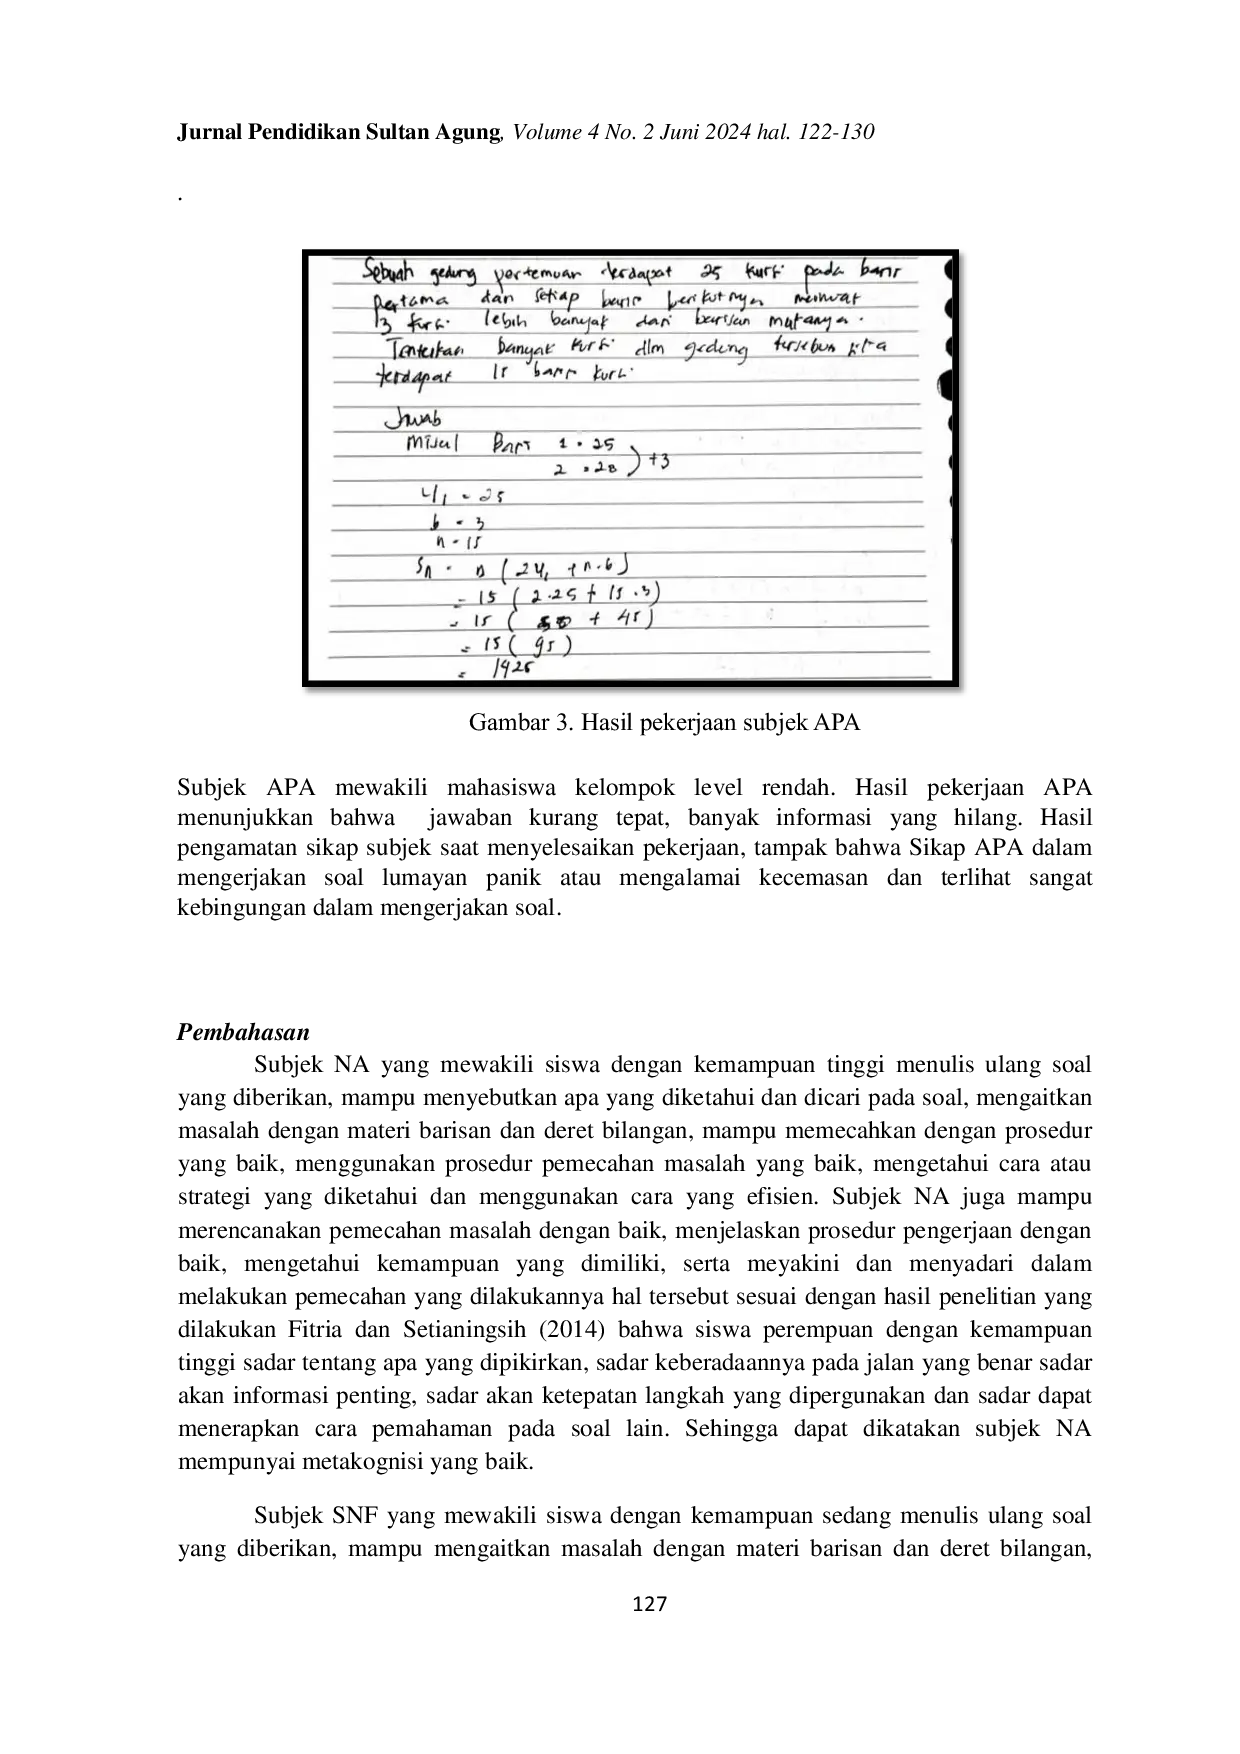 Jurnal Pendidikan Sultan Agung, Volume 4 No. 2 Juni 2024 hal. 122-130
.
Sebuah gedung pertemuan terdapat 25 kursi pada baris
pertama dan setiap baris berikutnya memuat
3 kursi lebih banyak dari barisan
Tentukan banyak kursi dlm gedung tersebut
terdapat 15 baris kursi
Jwab
Misal Baris 1 = 25
2 = 28 ) +3
U1 = 25
b = 3
n = 15
Sn = n ( 2U1 + n.b )
= 15 ( 2.25 + 15.3 )
= 15 ( 50 + 45 )
= 15 ( 95 )
= 1425
Gambar 3. Hasil pekerjaan subjek APA
Subjek APA mewakili mahasiswa kelompok level rendah. Hasil pekerjaan APA
menunjukkan bahwa jawaban kurang tepat, banyak informasi yang hilang. Hasil
pengamatan sikap subjek saat menyelesaikan pekerjaan, tampak bahwa Sikap APA dalam
mengerjakan soal lumayan panik atau mengalamai kecemasan dan terlihat sangat
kebingungan dalam mengerjakan soal.
Pembahasan
Subjek NA yang mewakili siswa dengan kemampuan tinggi menulis ulang soal
yang diberikan, mampu menyebutkan apa yang diketahui dan dicari pada soal, mengaitkan
masalah dengan materi barisan dan deret bilangan, mampu memecahkan dengan prosedur
yang baik, menggunakan prosedur pemecahan masalah yang baik, mengetahui cara atau
strategi yang diketahui dan menggunakan cara yang efisien. Subjek NA juga mampu
merencanakan pemecahan masalah dengan baik, menjelaskan prosedur pengerjaan dengan
baik, mengetahui kemampuan yang dimiliki, serta meyakini dan menyadari dalam
melakukan pemecahan yang dilakukannya hal tersebut sesuai dengan hasil penelitian yang
dilakukan Fitria dan Setianingsih (2014) bahwa siswa perempuan dengan kemampuan
tinggi sadar tentang apa yang dipikirkan, sadar keberadaannya pada jalan yang benar sadar
akan informasi penting, sadar akan ketepatan langkah yang dipergunakan dan sadar dapat
menerapkan cara pemahaman pada soal lain. Sehingga dapat dikatakan subjek NA
mempunyai metakognisi yang baik.
Subjek SNF yang mewakili siswa dengan kemampuan sedang menulis ulang soal
yang diberikan, mampu mengaitkan masalah dengan materi barisan dan deret bilangan,
127